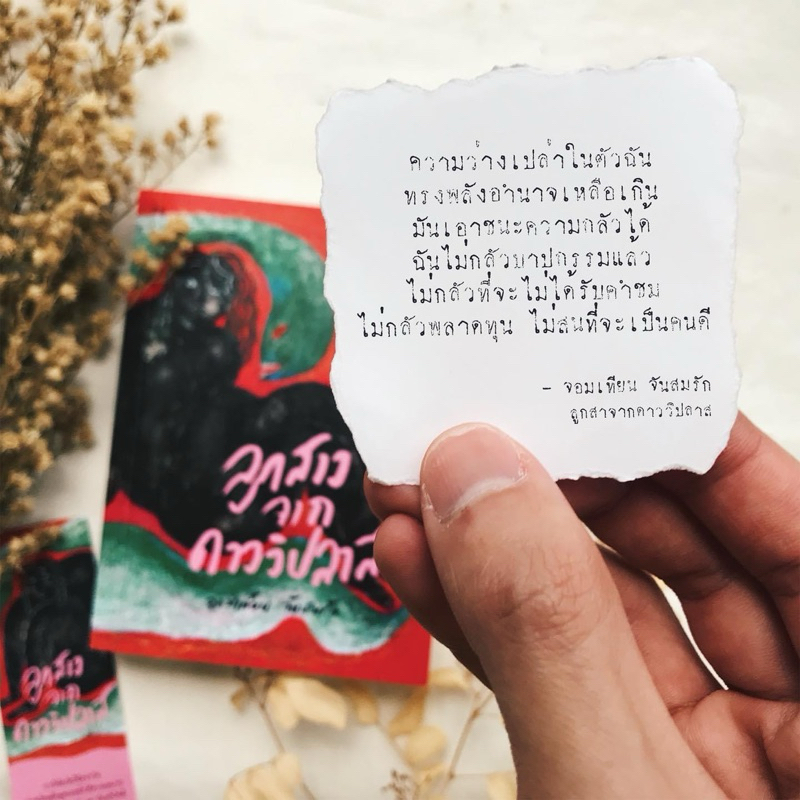 ความว่างเปล่าในตัวฉัน
ทรงพลังอำนาจเหลือเกิน
มันเอาชนะความกลัวได้
ฉันไม่กลัวบาปกรรมแล้ว
ไม่กลัวที่จะไม่ได้รับคำชม
ไม่กลัวพลาดทุน ไม่สนที่จะเป็นคนดี
- จอมเทียน จันสมรัก
ลูกสาจากดาววิปลาส
ลูกสาว
จาก
ดาววิปลาส
จอมเทียน จันสมรัก
ลูกสาว
จาก
ดาววิปลาส